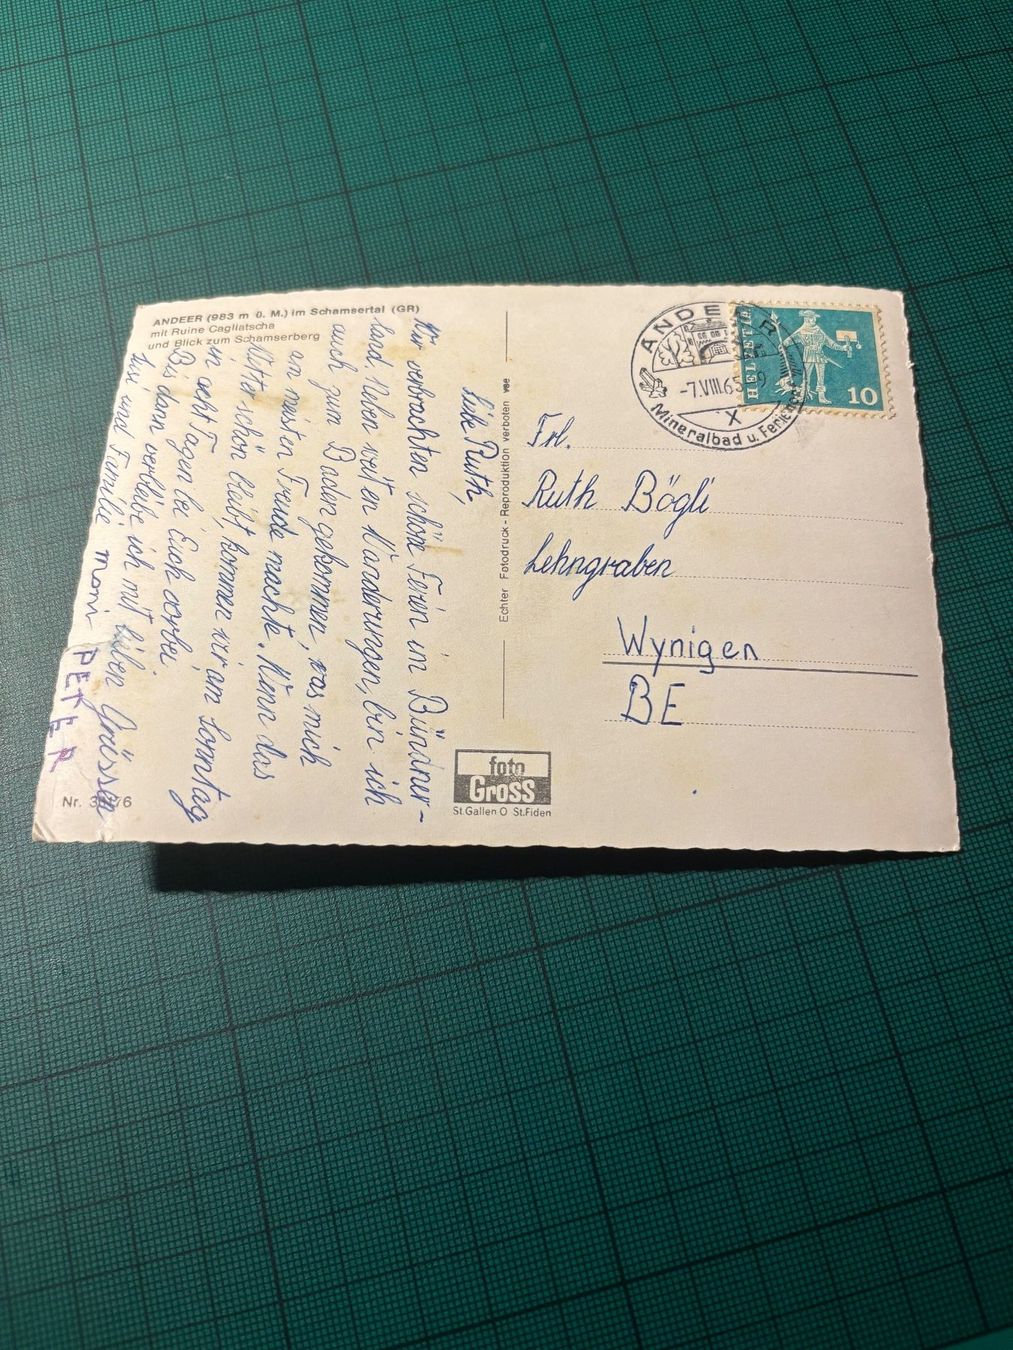 ANDEER (983 m ü. M.) im Schamsertal (GR)
mit Ruine Cagliatscha
und Blick zum Schamserberg
Liebe Ruth,
Wir verbrachten schöne Ferien im Bündner-
land. Neben weiten Wanderungen, bin ich
auch zum Baden gekommen, was mich
am meisten Freude machte. Wenn das
Wetter schön bleibt, kommen wir am Sonntag
in acht Tagen bei Euch vorbei.
Bis dann verbleibe ich mit lieben Grüssen
und Familie
PETER
Nr.
Echter Fotodruck - Reproduktion verboten vse
foto
Gross
St.Gallen O St.Fiden
ANDEER
-7.VIII.65
Mineralbad u. Ferienort
HELVETIA
10
Frl.
Ruth Bögli
Lehngraben
Wynigen
BE